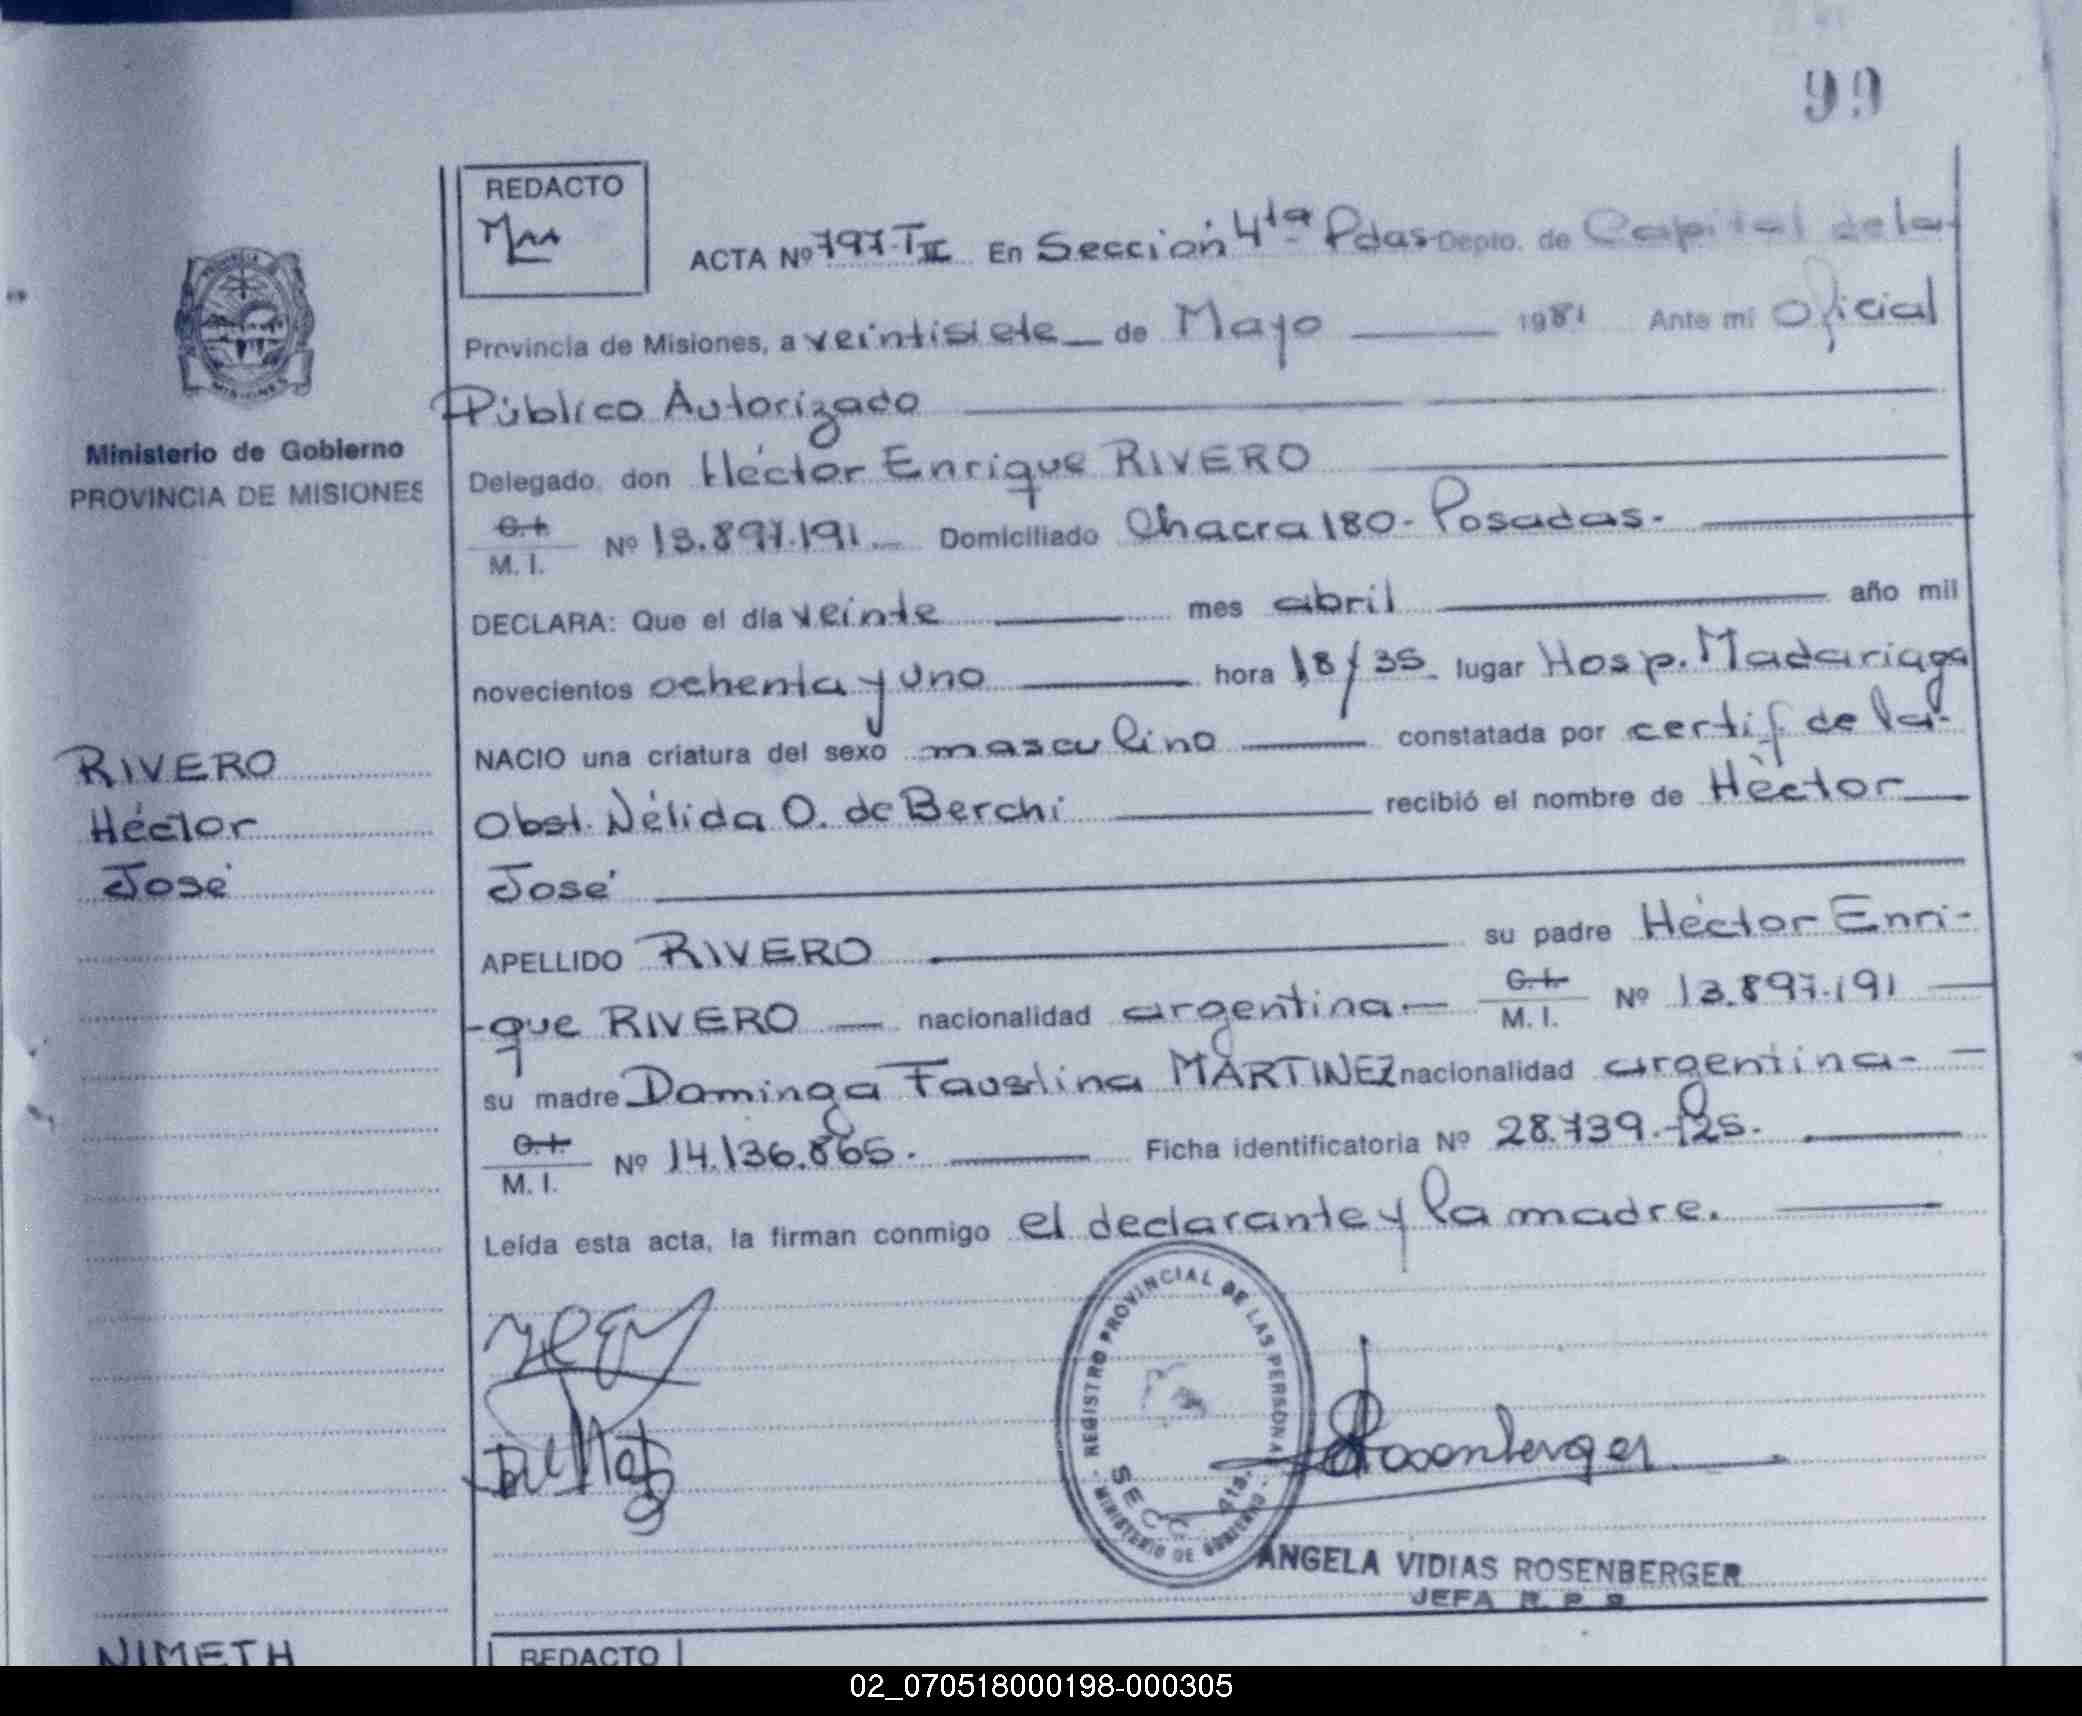 99
REDACTO
ACTA Nº 797-T II En Sección 4ta Pdas Depto. de Capital de la
Provincia de Misiones, a veintisiete de Mayo 1981 Ante mi Oficial
Público Autorizado
Ministerio de Gobierno
PROVINCIA DE MISIONES
Delegado, don Héctor Enrique RIVERO
C.I.
M. I. Nº 13.897.191 Domiciliado Chacra 180- Posadas.
DECLARA: Que el día veinte mes abril año mil
novecientos ochenta y uno hora 18/35 lugar Hosp. Madariaga
NACIO una criatura del sexo masculino constatada por certif de la
RIVERO
Héctor
José
Obst. Nélida O. de Berchi recibió el nombre de Héctor
José
APELLIDO RIVERO su padre Héctor Enri-
-que RIVERO nacionalidad argentina C.I.
M. I. Nº 13.897.191
su madre Dominga Faustina MARTINEZ nacionalidad argentina-
C.I.
M. I. Nº 14.136.865. Ficha identificatoria Nº 28.739.-
Leída esta acta, la firman conmigo el declarante y la madre.
REGISTRO PROVINCIAL DE LAS PERSONAS
SECC. 4ta.
MINISTERIO DE GOBIERNO
Rosenberger
ANGELA VIDIAS ROSENBERGER
JEFA R. P. P.
NIMETH
REDACTO
02_070518000198-000305